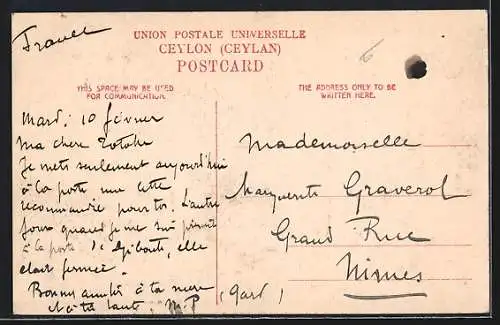 France
UNION POSTALE UNIVERSELLE
CEYLON (CEYLAN)
POSTCARD
THIS SPACE MAY BE USED
FOR COMMUNICATION.
THE ADDRESS ONLY TO BE
WRITTEN HERE.
Mardi 10 février
Ma chère
Je mets seulement aujourd'hui
à la poste une lettre
recommandée pour toi. L'autre
jour quand je me suis
à la poste de Djibouti, elle
était fermée.
Bonnes amitiés à ta mère
et à ta tante, M.P
Mademoiselle
Marguerite Graverol
Grand Rue
Nimes
(Gard)